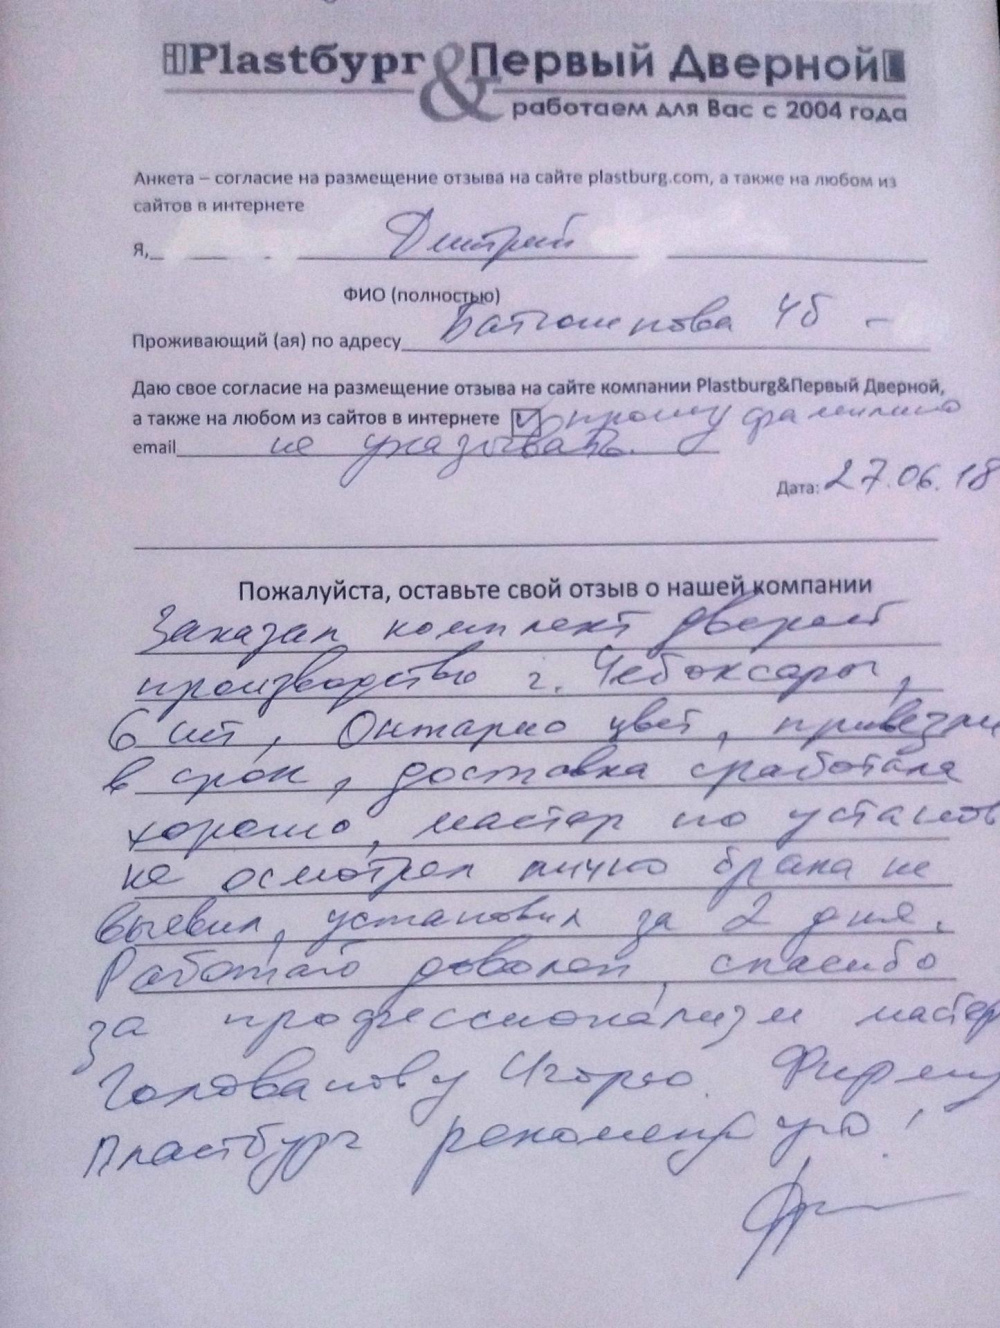 Plastбург & Первый Дверной
работаем для Вас с 2004 года
Анкета – согласие на размещение отзыва на сайте plastburg.com, а также на любом из
сайтов в интернете
Я, Дмитрий
ФИО (полностью)
Проживающий (ая) по адресу 4б -
Даю свое согласие на размещение отзыва на сайте компании Plastburg&Первый Дверной,
а также на любом из сайтов в интернете прошу фамилию
email не указывать.
Дата: 27.06.18
Пожалуйста, оставьте свой отзыв о нашей компании
Заказал комплект дверей
производство г. Чебоксары,
6 шт, Онтарио цвет, привезли
в срок, доставка сработала
хорошо, мастер по установ
ке осмотрел лично брака не
выевил, установил за 2 дня.
Работаю доволен, спасибо
за профессионализм мастер
Голованову Игорю. Фирму
Пластбург рекомендую!